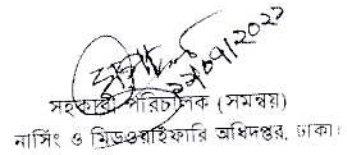 ২৮/০৭/২০২২
সহকারী পরিচালক (সমন্বয়)
নার্সিং ও মিডওয়াইফারি অধিদপ্তর, ঢাকা।